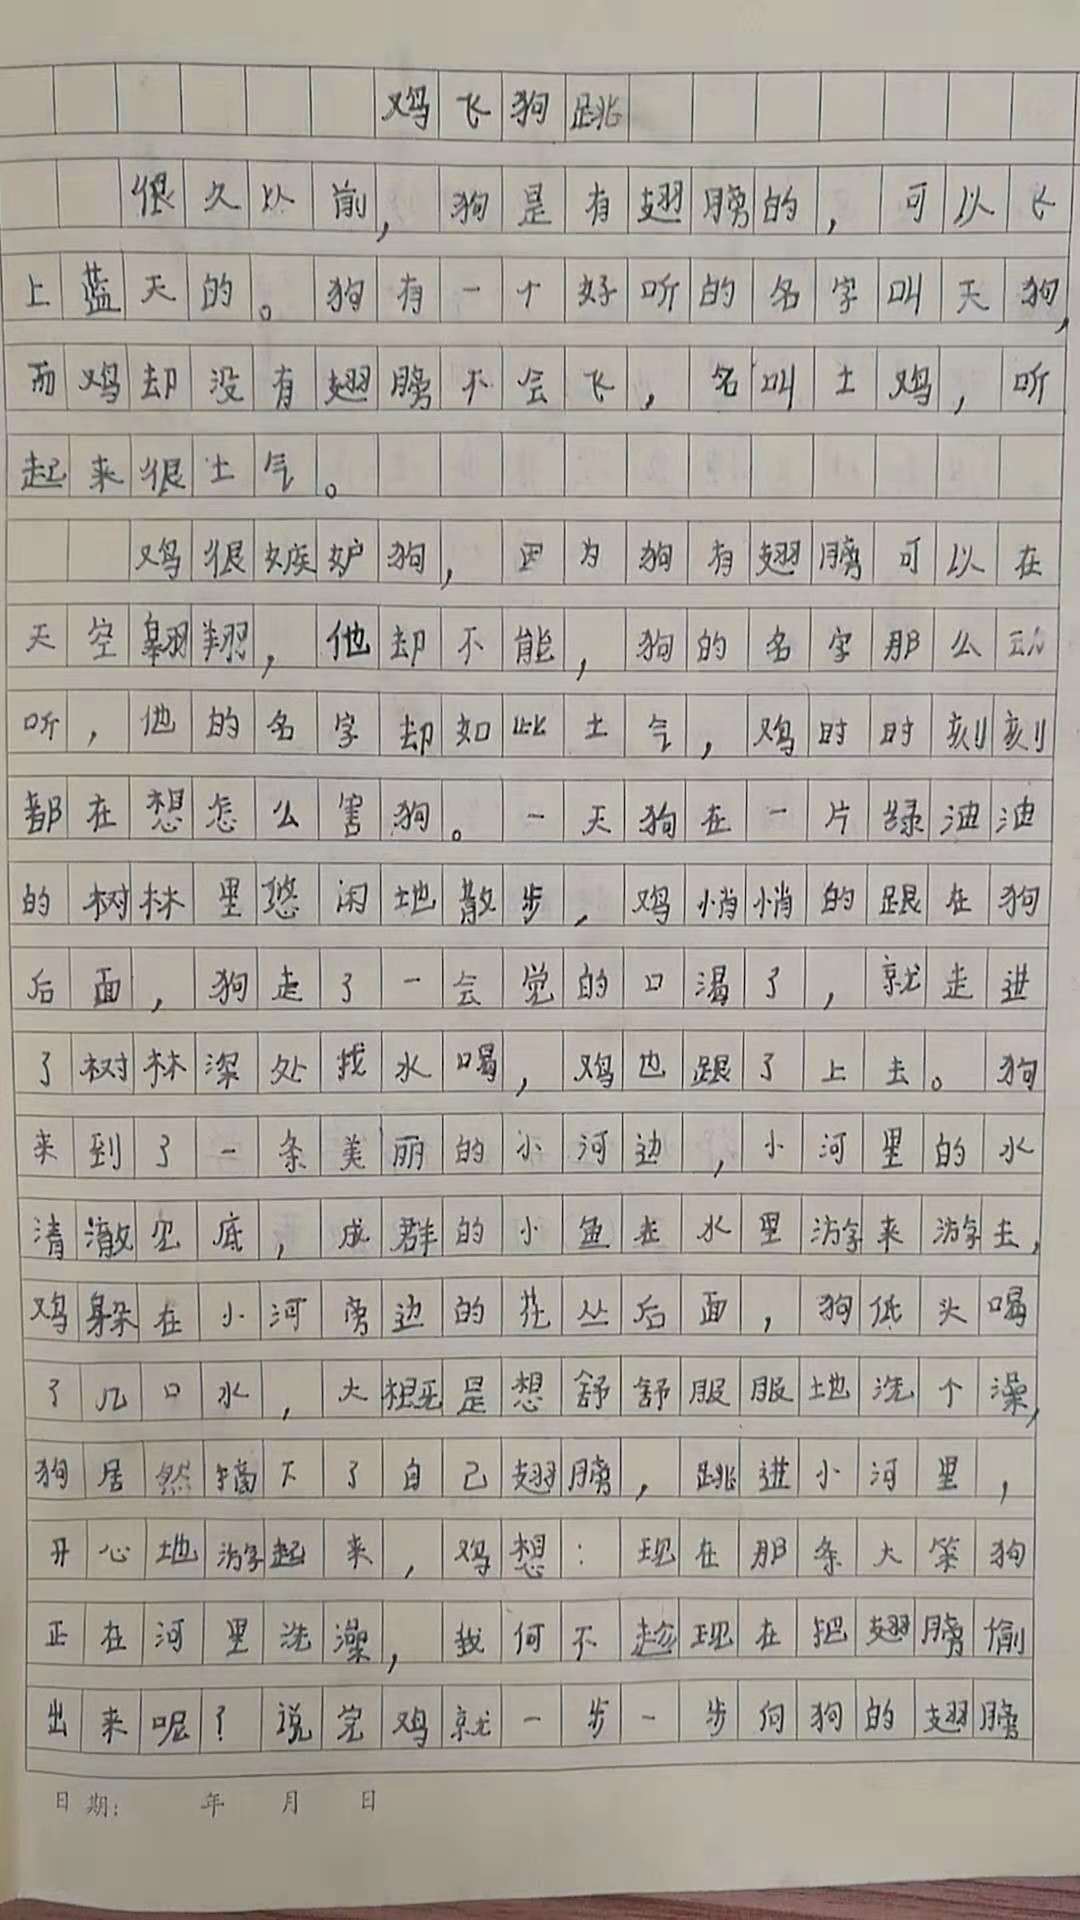 鸡飞狗跳
很久以前，狗是有翅膀的，可以飞
上蓝天的。狗有一个好听的名字叫天狗，
而鸡却没有翅膀不会飞，名叫土鸡，听
起来很土气。
鸡很嫉妒狗，因为狗有翅膀可以在
天空翱翔，他却不能，狗的名字那么动
听，他的名字却如此土气，鸡时时刻刻
都在想怎么害狗。一天狗在一片绿油油
的树林里悠闲地散步，鸡悄悄的跟在狗
后面，狗走了一会觉的口渴了，就走进
了树林深处找水喝，鸡也跟了上去。狗
来到了一条美丽的小河边，小河里的水
清澈见底，成群的小鱼在水里游来游去，
鸡躲在小河旁边的花丛后面，狗低头喝
了几口水，大概是想舒舒服服地洗个澡，
狗居然摘下了自己翅膀，跳进小河里，
开心地游起来，鸡想：现在那条大笨狗
正在河里洗澡，我何不趁现在把翅膀偷
出来呢？说完鸡就一步一步向狗的翅膀
日期： 年 月 日